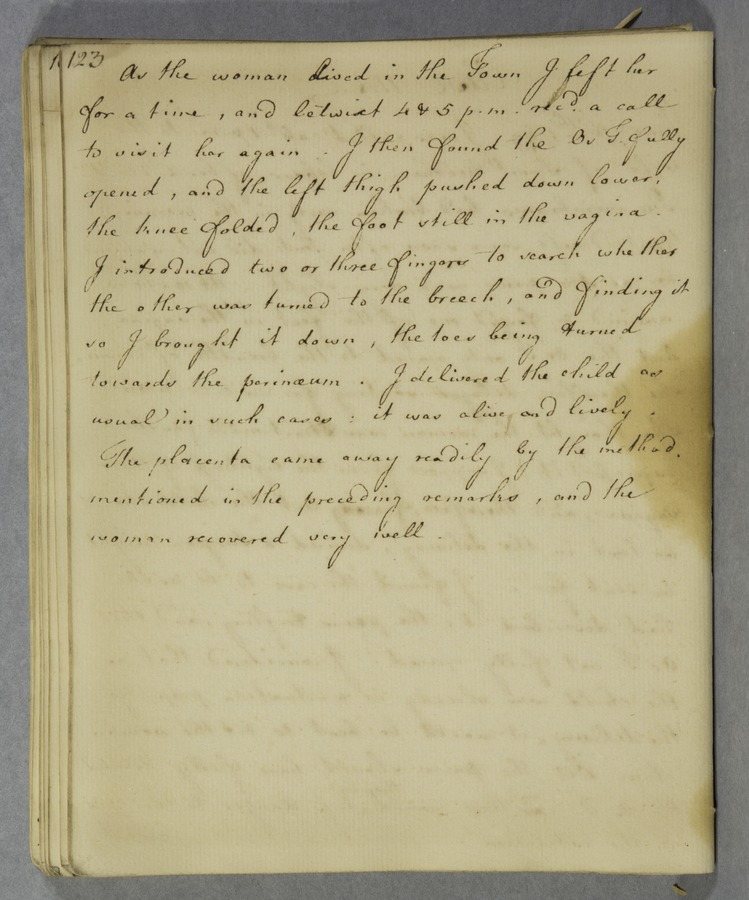 123
As the woman lived in the Town I left her
for a time, and betwixt 4 & 5 p.m. recd. a call
to visit her again. I then found the Os T. fully
opened, and the left thigh pushed down lower,
the knee folded, the foot still in the vagina.
I introduced two or three fingers to search whether
the other was turned to the breech, and finding it
so I brought it down, the toes being turned
towards the perinæum. I delivered the child as
usual in such cases: it was alive and lively.
The placenta came away readily by the method
mentioned in the preceding remarks, and the
woman recovered very well.